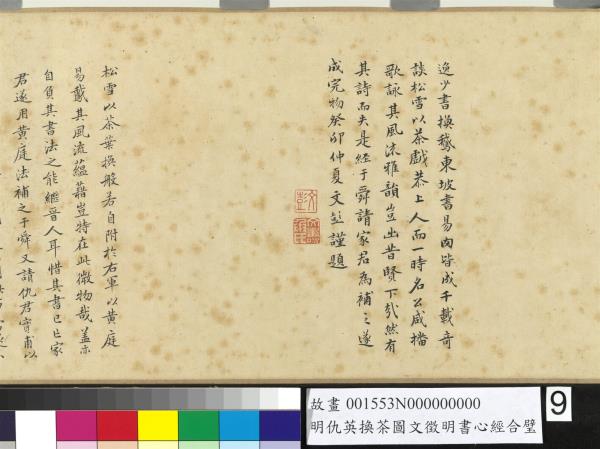 逸少書換鵞東坡書易肉皆成千載奇
談松雪以茶戲恭上人而一時名公咸播
歌詠其風流雅韻豈出昔賢下哉然有
其詩而失是經于舜請家君為補之遂
成完物癸卯仲夏文彭謹題
文彭
松雪以茶葉換般若自附於右軍以黃庭
易鵞其風流蘊藉豈特在此微物哉蓋亦
自負其書法之能繼晉人耳惜其書已亡家
君遂用黃庭法補之于舜又請仇君實甫以
故畫 001553N000000000
明仇英換茶圖文徵明書心經合璧
9